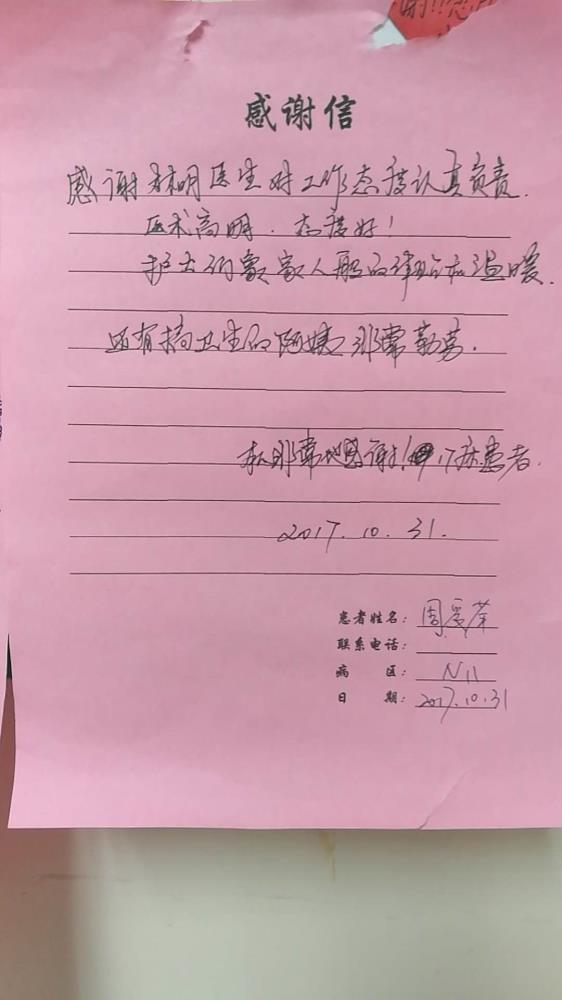 感谢信
感谢林明医生对工作态度认真负责.
医术高明.态度好!
护士们象家人般的 温暖.
还有搞卫生的阿姨非常勤劳.
我非常地感谢! 17床患者.
2017.10.31.
患者姓名: 周爱荣
联系电话:
病 区: N11
日 期: 2017.10.31